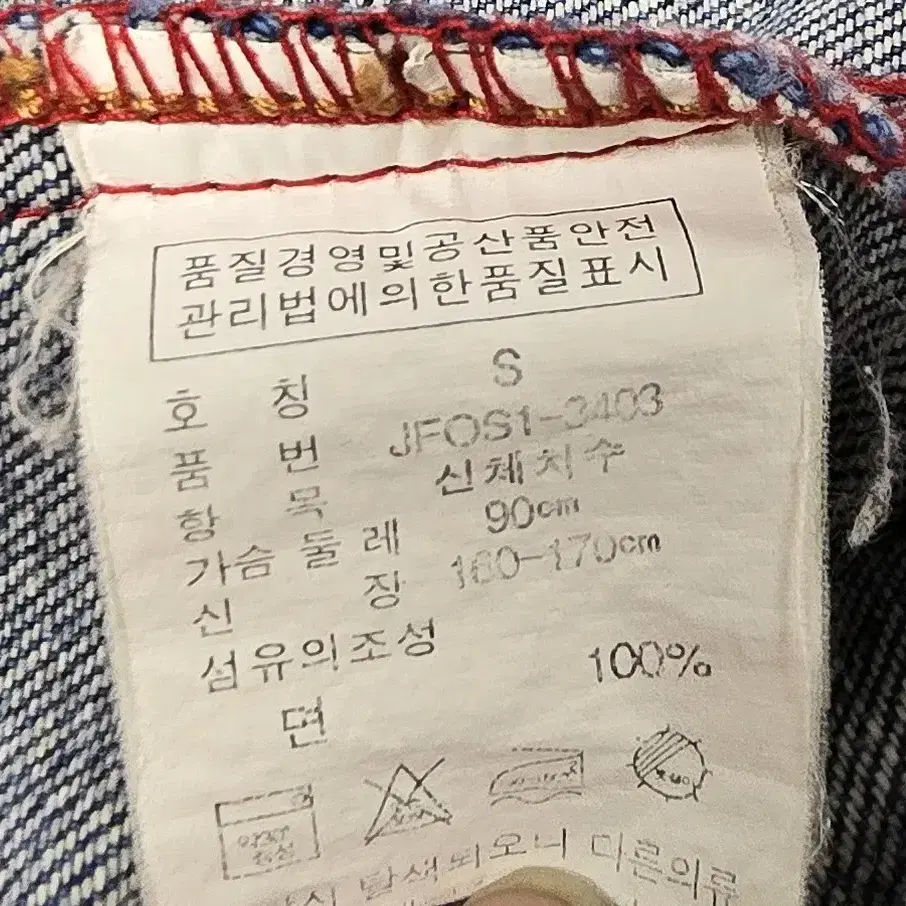 품질경영및공산품안전
관리법에의한품질표시
호 칭 S
품 번 JFOS1-3403
항 목 신체치수
가슴둘레 90cm
신 장 160-170cm
섬유의조성
면 100%
탈색되오니 다른의류